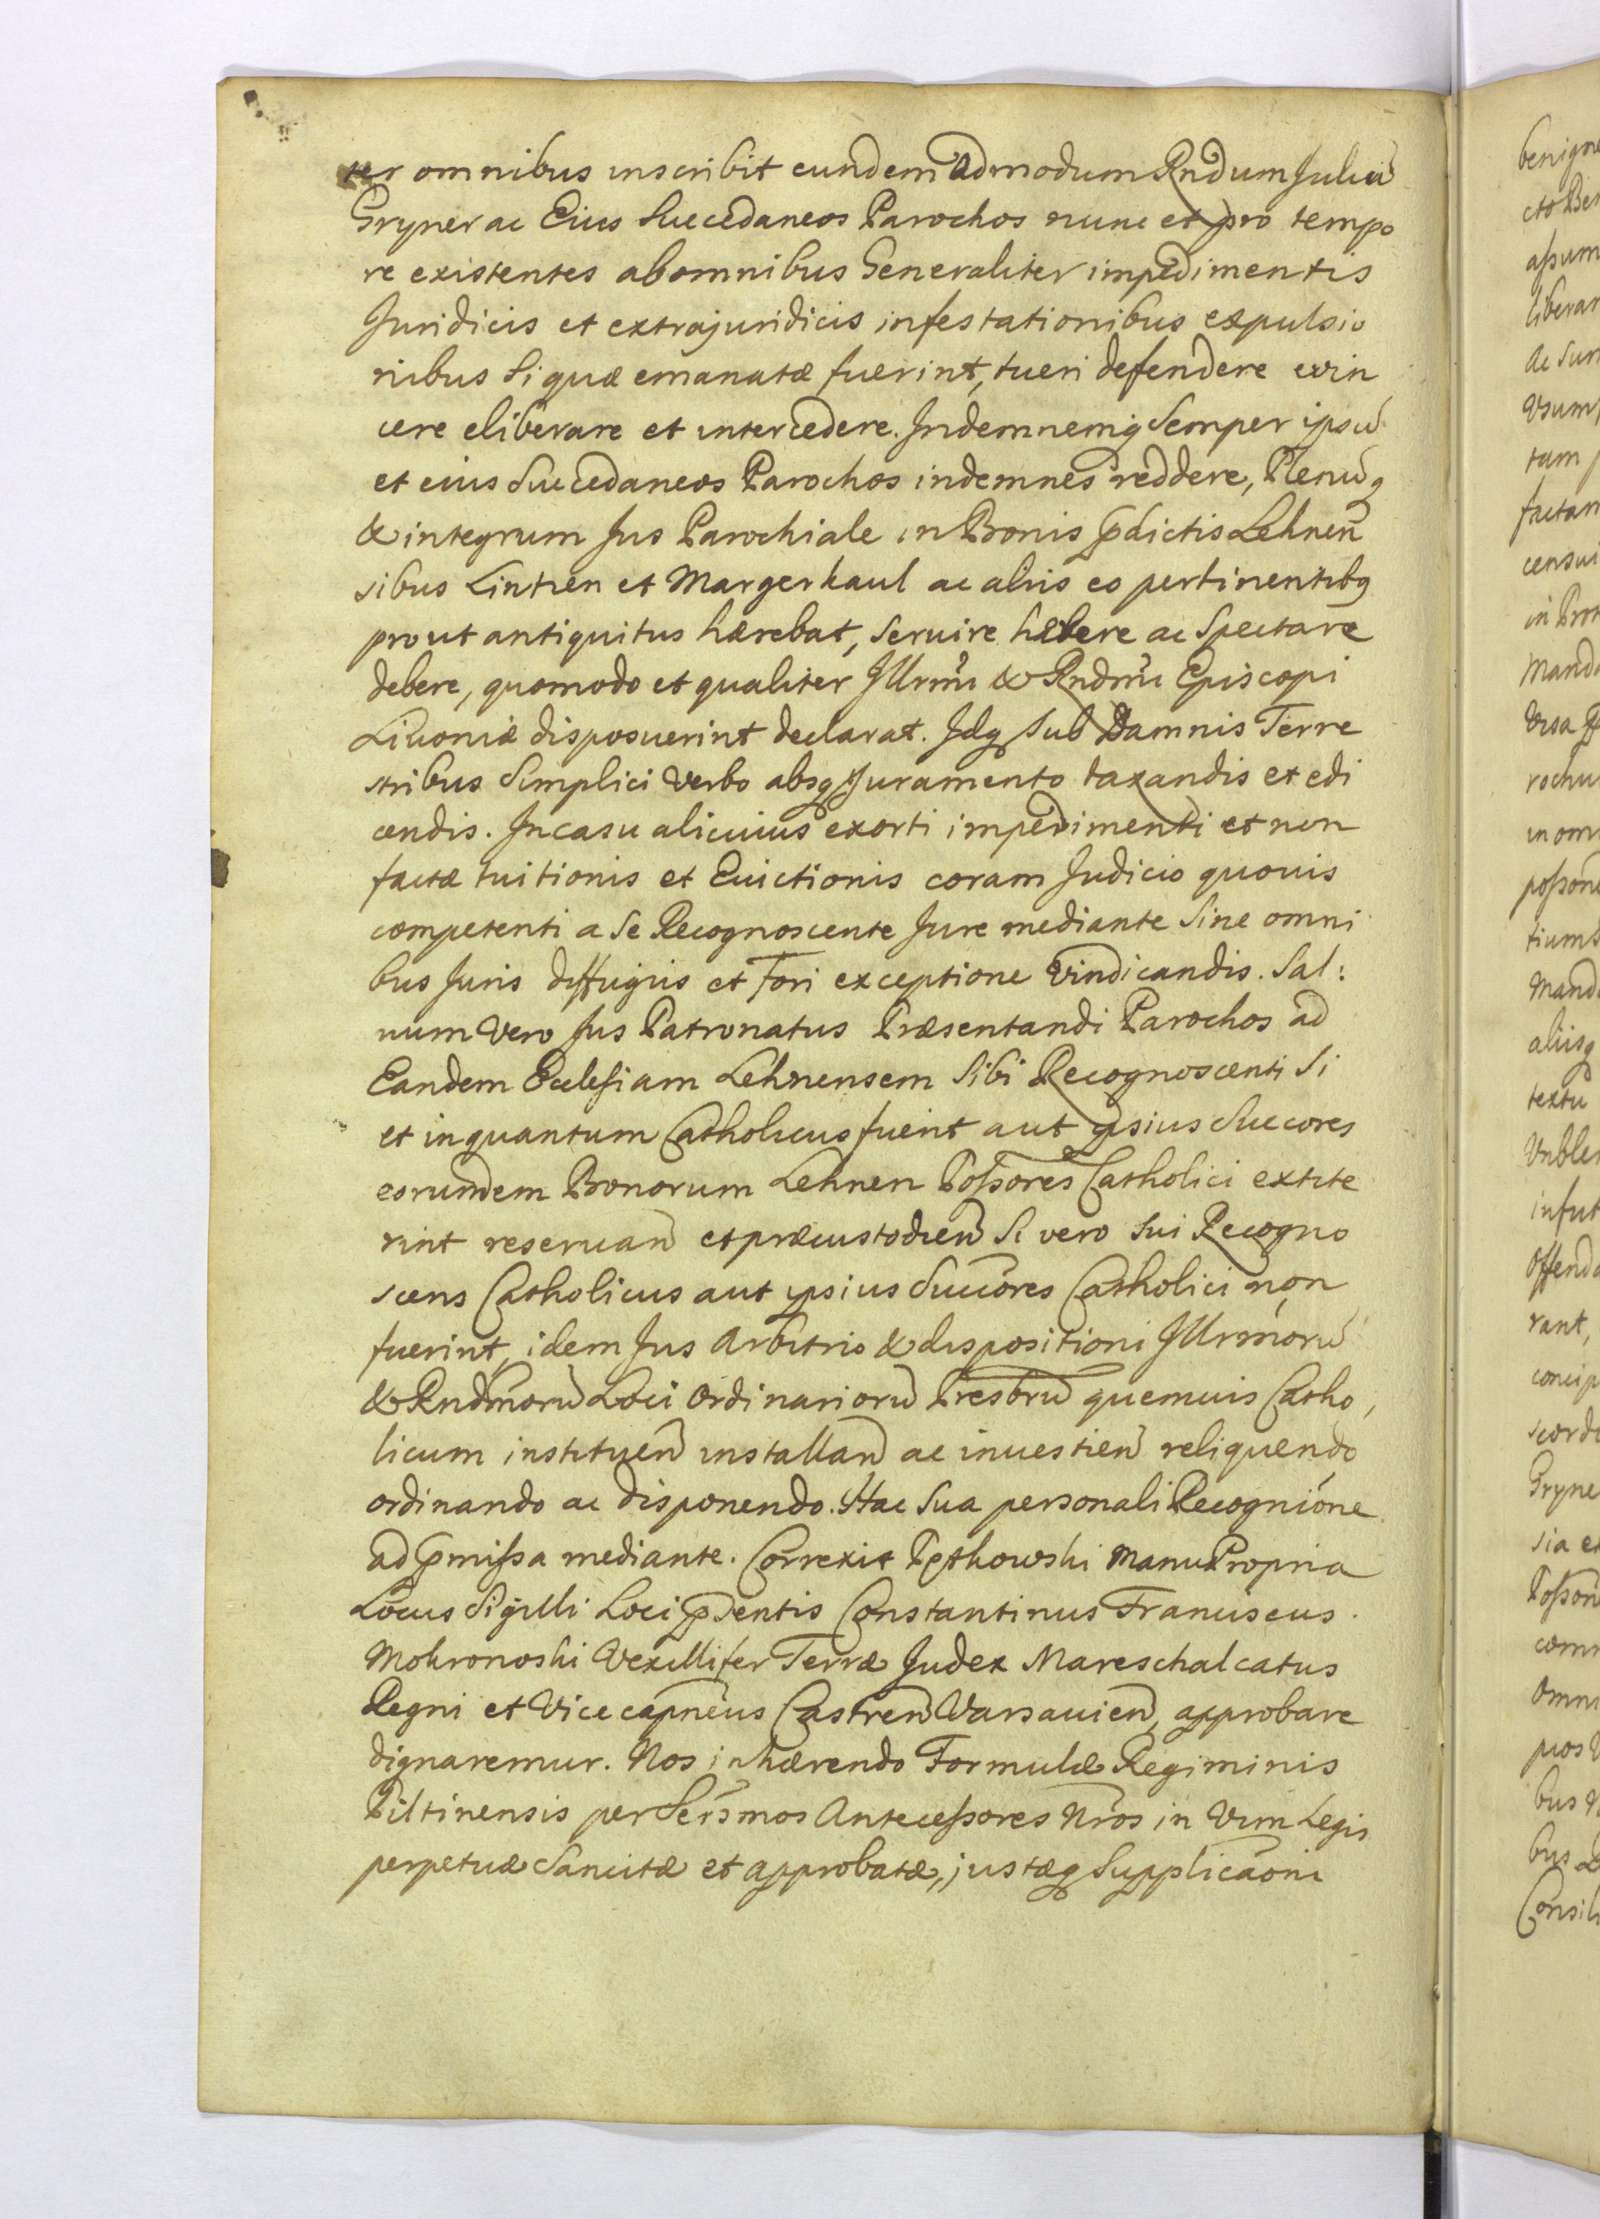 ter omnibus inscribit eundem Admodum Rndum Juliũ
Gryner ac Eius Succedaneos Parochos nunc et pro tempo
re existentes ab omnibus Generaliter impedimentis
Juridicis et extrajuridicis infestationibus expulsio
nibus Si quæ emanatæ fuerint, tueri defendere evin
cere eliberare et intercedere. Indemnemq Semper ipsũ
et eius Succedaneos Parochos indemnes reddere, Plenũq
& integrum Jus Parochiale in Bonis p̃dictis Lehnen̄
sibus Lintren et Margerkaul ac aliis eo pertinentibq
prout antiquitus hærebat, Servire habere ac Spectare
debere, quomodo et qualiter Jllrmi & Rndmi Episcopi
Livoniæ disposuerint declarat. Jdq Sub Damnis Terre
stribus Simplici Verbo absq Juramento taxandis et edi
cendis. In casu alicuius exorti impedimenti et non
factæ tuitionis et Evictionis coram Judicio quovis
competenti a Se Recognoscente Jure mediante Sine omni
bus Juris diffugiis et Fori exceptione Vindicandis. Sal:
vum Vero Jus Patronatus Præsentandi Parochos ad
Eandem Ecclesiam Lehnensem Sibi Recognoscenti Si
et inquantum Catholicus fuerit aut ipsius Succores
eorundem Bonorum Lehnen Possores Catholici extite
rint reservan̄ et præcustodien̄ Si vero Sui Recogno
scens Catholicus aut ipsius Succores Catholici non
fuerint, idem Jus Arbitrio & dispositioni Jllrmorũ
& Rndmorũ Loci Ordinariorũ Presbrũ quemvis Catho,
licum instituen̄ installan̄ ac investien̄ reliquendo
ordinando ac disponendo. Hac Sua personali Recognióne
ad p̃missa mediante. Correxit Pęthowski Manu Propria
Locus Sigilli Loci p̃dentis Constantinus Franciscus
Mokronoski Vexillifer Terræ Judex Mareschalcatus
Regni et Vice capneus Castren̄ Varsavien̄, approbare
dignaremur. Nos inhærendo Formulæ Regiminis
Piltinensis per Sersmos Antecessores Nros in Vim Legis
perpetuæ Sancitæ et approbatæ, justæq Supplicaoni
benigne
cto Ben
assum
liberar
ac Sur
Vsum,
tam
factam
censui
in Prot
Manda
Visa
rochu
in om
posson
tium
Mand
aliisq
textu
Vnble
in fut
Offenda
rant,
concip
scorda
Gryne
sia et
Posson
comm
Omni
pios
bus
bus
Consili